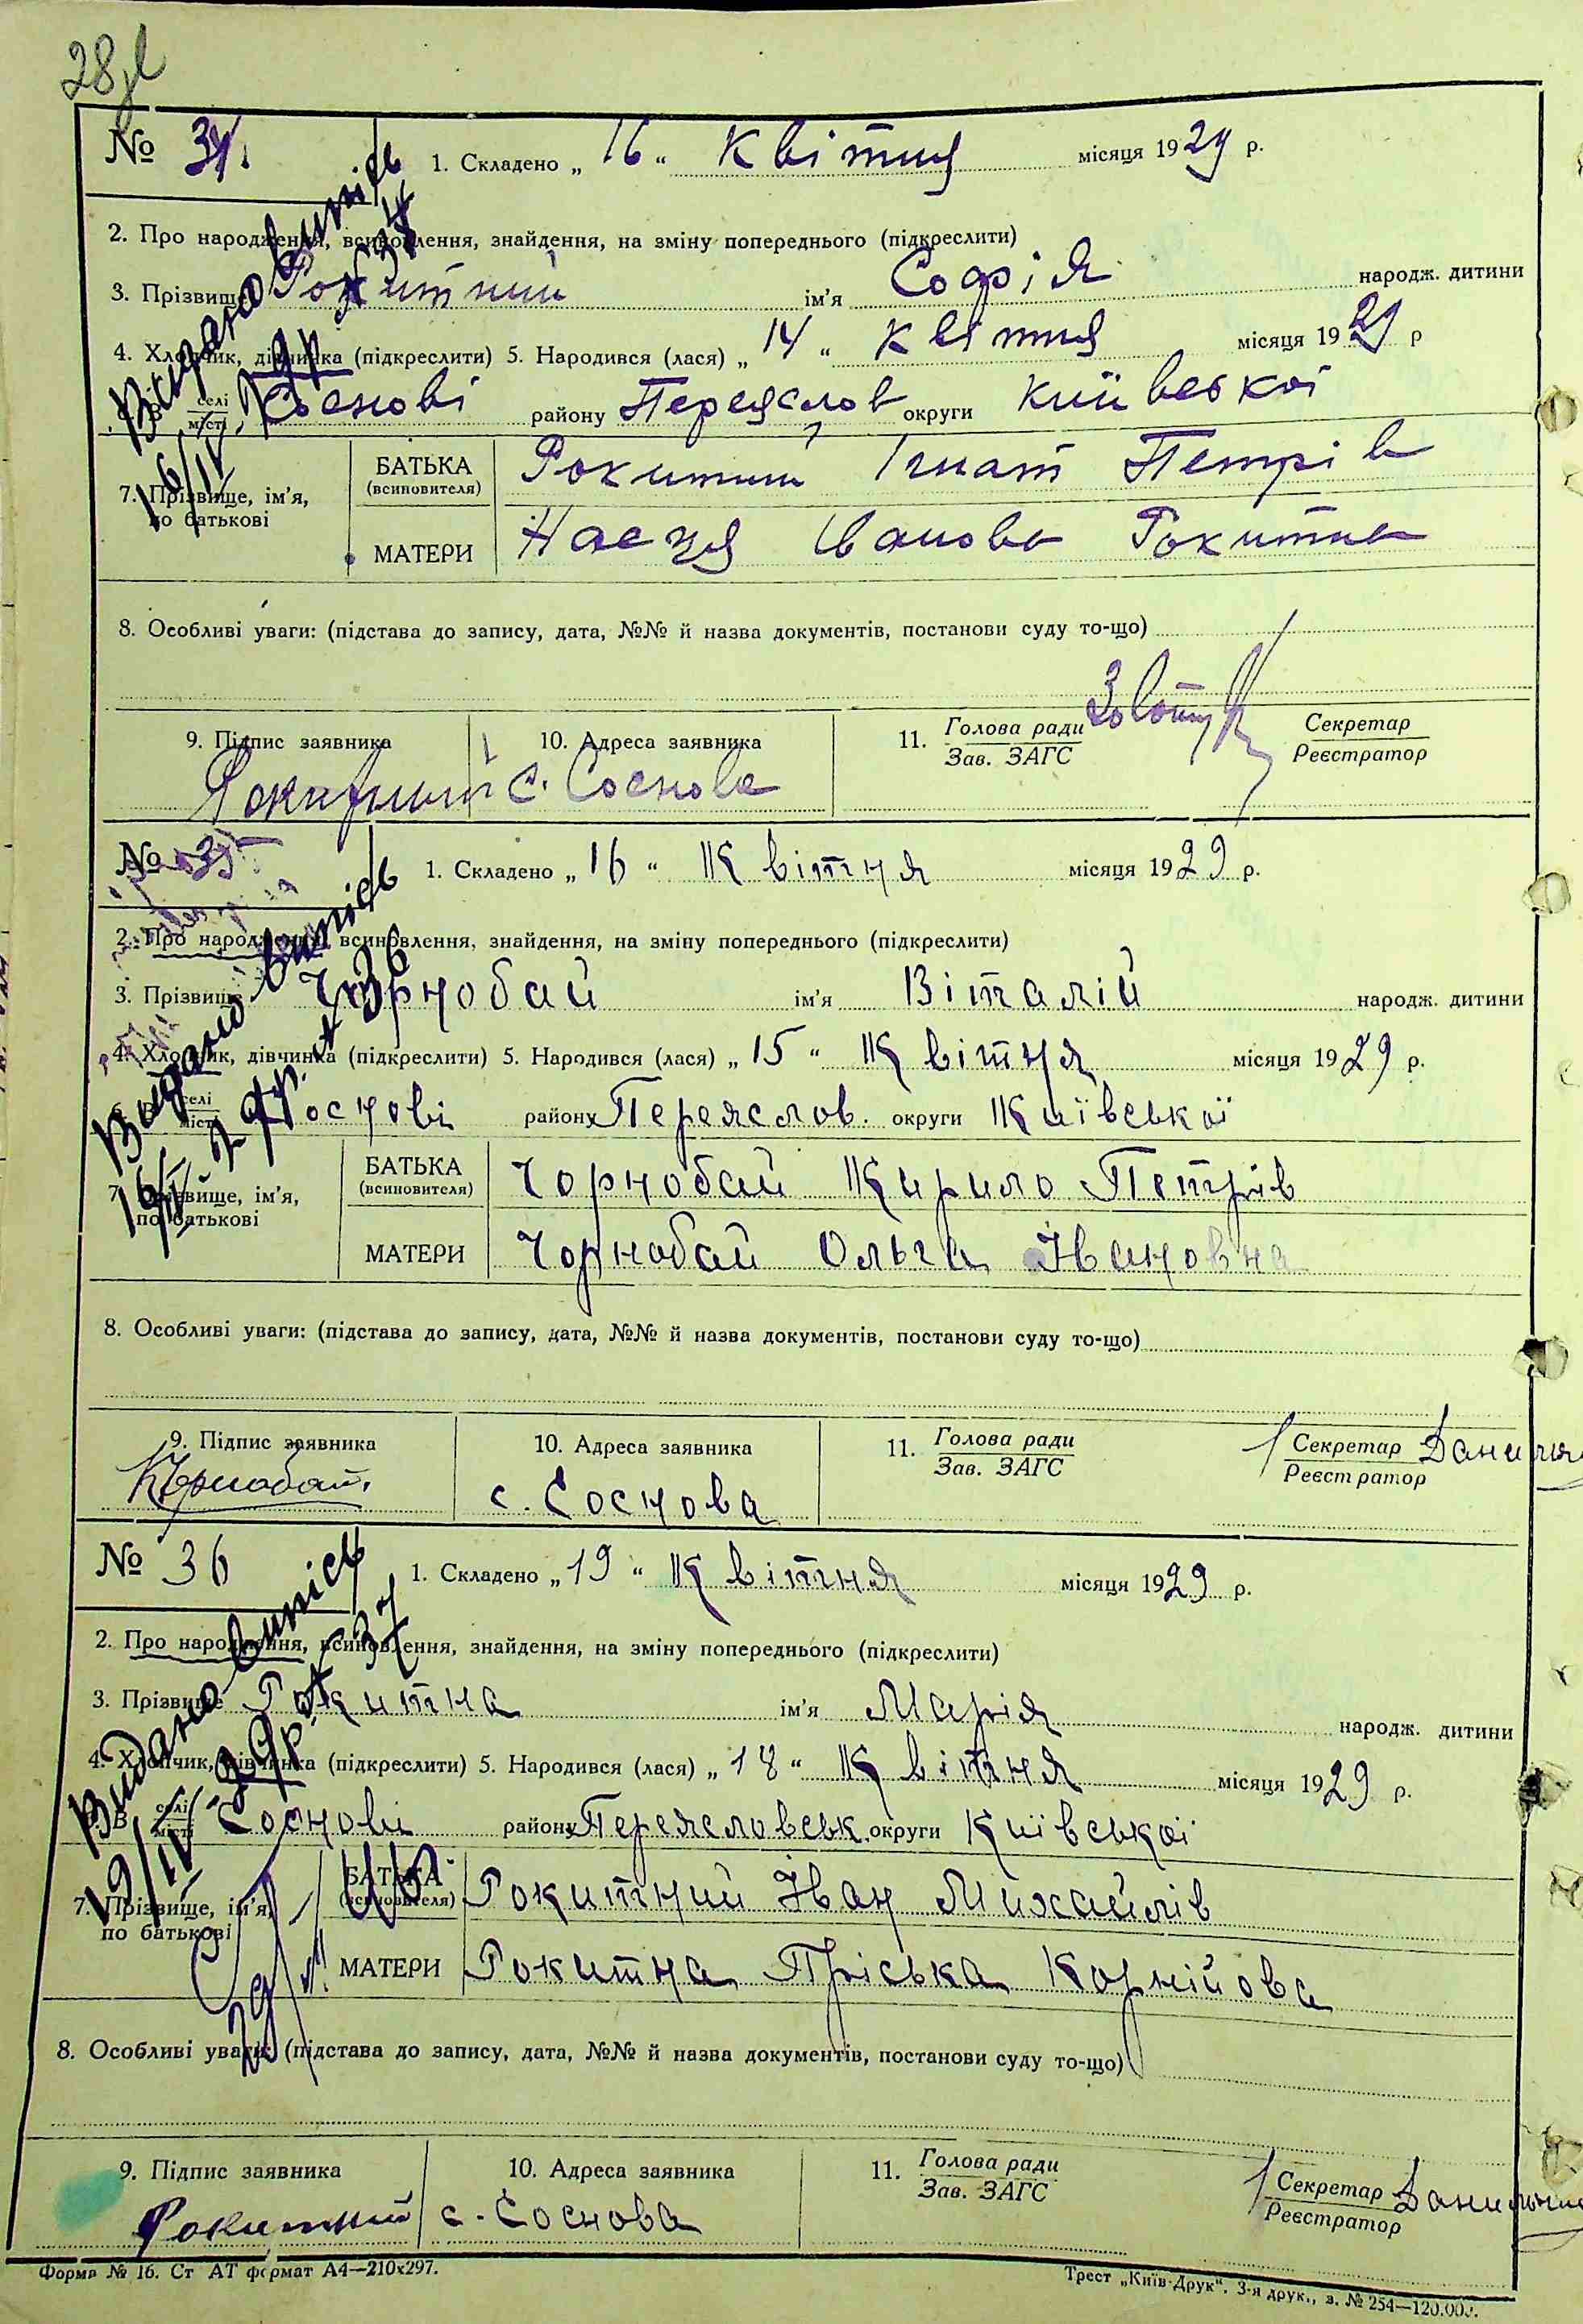 28
№ 34. 1. Складено „ 16 “ Квітня місяця 1929 р.
Видано випись
№ 34
2. Про народження, всиновлення, знайдення, на зміну попереднього (підкреслити)
3. Прізвище Рокитний ім’я Софія народж. дитини
4. Хлопчик, дівчинка (підкреслити) 5. Народився (лася) „ 14 “ Квітня місяця 1929 р
6. В селі/місті Соснові району Переяслов округи Київської
16/IV 29р
7. Прізвище, ім’я, по батькові
БАТЬКА (всиновителя) Рокитний Ігнат Петрів
МАТЕРИ Насця Іванова Рокитна
8. Особливі уваги: (підстава до запису, дата, №№ й назва документів, постанови суду то-що)
9. Підпис заявника 10. Адреса заявника 11. Голова ради / Зав. ЗАГС Секретар / Реєстратор
Рокитний с. Соснова
№ 35 1. Складено „ 16 “ Квітня місяця 1929 р.
Видано випись
№ 36
2. Про народження, всиновлення, знайдення, на зміну попереднього (підкреслити)
3. Прізвище Чорнобай ім’я Віталій народж. дитини
4. Хлопчик, дівчинка (підкреслити) 5. Народився (лася) „ 15 “ Квітня місяця 1929 р.
6. В селі/місті Соснові району Переяслов. округи Київської
16/IV 29р.
7. Прізвище, ім’я, по батькові
БАТЬКА (всиновителя) Чорнобай Кирило Петрів
МАТЕРИ Чорнобай Ольга Івановна
8. Особливі уваги: (підстава до запису, дата, №№ й назва документів, постанови суду то-що)
9. Підпис заявника 10. Адреса заявника 11. Голова ради / Зав. ЗАГС Секретар / Реєстратор
с. Соснова
№ 36 1. Складено „ 19 “ Квітня місяця 1929 р.
Видано випись
№ 37
2. Про народження, всиновлення, знайдення, на зміну попереднього (підкреслити)
3. Прізвище Рокитна ім’я Марія народж. дитини
4. Хлопчик, дівчинка (підкреслити) 5. Народився (лася) „ 18 “ Квітня місяця 1929 р.
6. В селі/місті Соснові району Переясловськ. округи Київської
19/IV 29р.
7. Прізвище, ім’я, по батькові
БАТЬКА (всиновителя) Рокитний Іван Михайлів
МАТЕРИ Рокитна Пріська Корнійова
8. Особливі уваги: (підстава до запису, дата, №№ й назва документів, постанови суду то-що)
9. Підпис заявника 10. Адреса заявника 11. Голова ради / Зав. ЗАГС Секретар / Реєстратор
Рокитний с. Соснова
Форма № 16. Ст АТ формат А4—210х297. Трест „Київ-Друк“. 3-я друк., з. № 254—120.000.